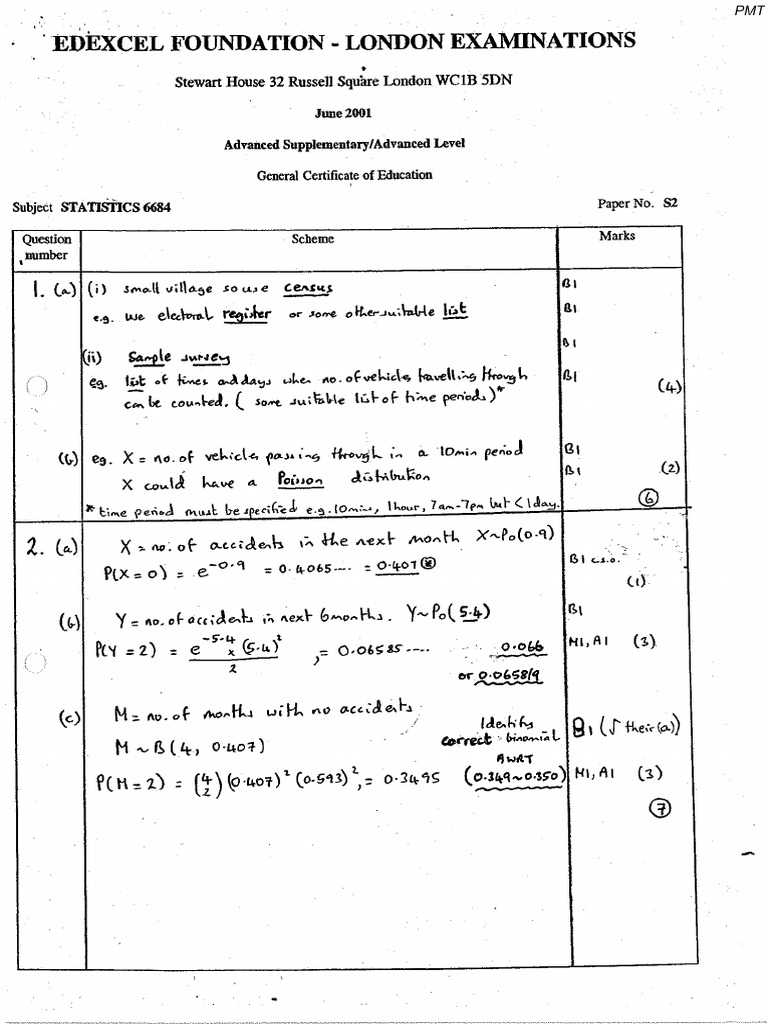 PMT
EDEXCEL FOUNDATION - LONDON EXAMINATIONS
Stewart House 32 Russell Square London WC1B 5DN
June 2001
Advanced Supplementary/Advanced Level
General Certificate of Education
Subject STATISTICS 6684 Paper No. S2
Question number Scheme Marks
1. (a) (i) small village so use census B1
e.g. use electoral register or some other suitable list B1
(ii) Sample survey B1
eg. list of times and days when no. of vehicles travelling through B1
can be counted. (some suitable list of time periods)* (4)
(b) eg. X = no. of vehicles passing through in a 10min period B1
X could have a Poisson distribution B1 (2)
* time period must be specified e.g. 10mins, 1hour, 7am-7pm but < 1day. 6
2. (a) X = no. of accidents in the next month X~Po(0.9)
P(X=0) = e^-0.9 = 0.4065.... = 0.407 * B1 c.s.o.
(1)
(b) Y = no. of accidents in next 6months. Y~Po(5.4) B1
P(Y=2) = e^-5.4 x (5.4)^2 / 2 , = 0.06585.... 0.066 M1, A1 (3)
or 0.0658/9
(c) M = no. of months with no accidents
Identify B1 (√ their (a))
M ~ B(4, 0.407) correct binomial
AWRT
P(M=2) = (4 2) (0.407)^2 (0.593)^2, = 0.3495 (0.349~0.350) M1, A1 (3)
7